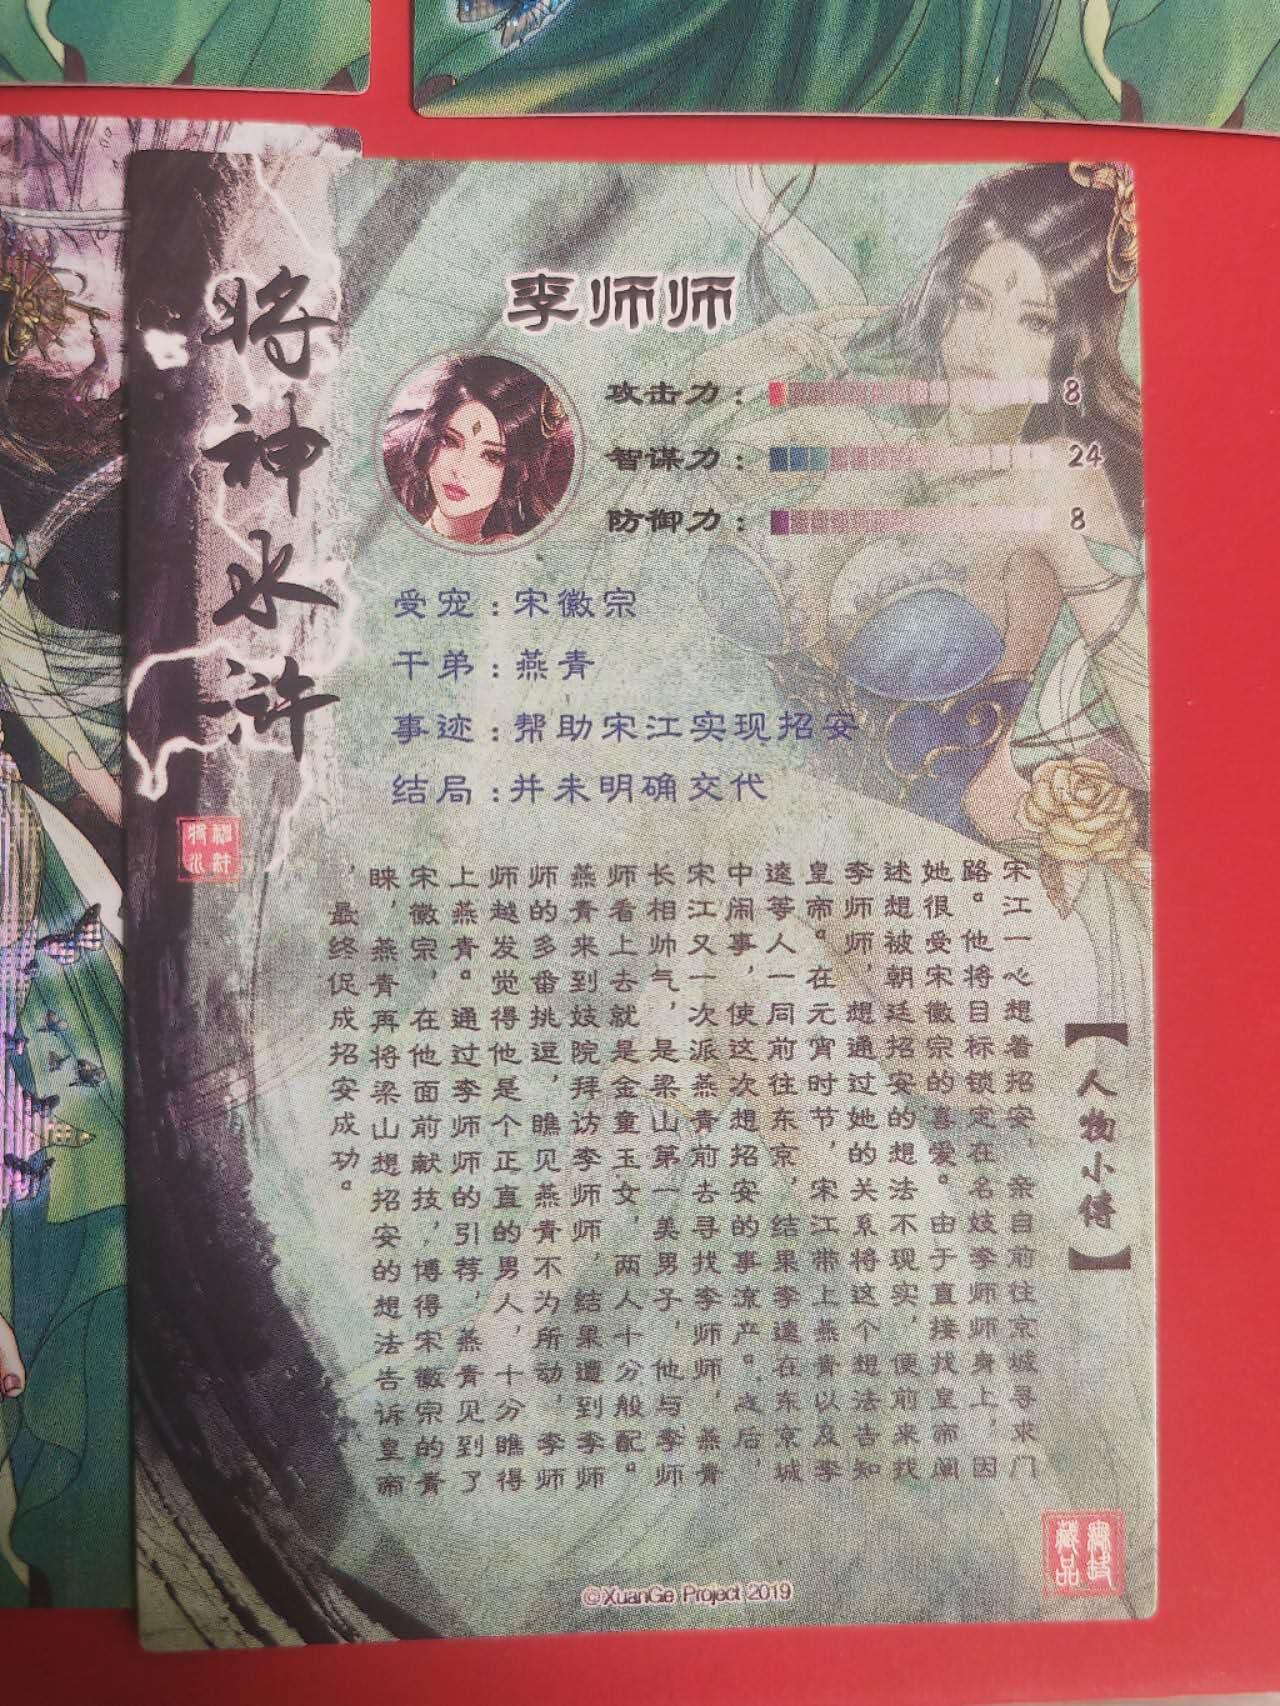 将神水浒
李师师
攻击力：8
智谋力：24
防御力：8
受宠：宋徽宗
干弟：燕青
事迹：帮助宋江实现招安
结局：并未明确交代
【人物小传】
宋江一心想着招安，亲自前往京城寻求门
路。他将目标锁定在名妓李师师身上，因
她很受宋徽宗的喜爱。由于直接找皇帝阐
述想被朝廷招安的想法不现实，便前来找
李师师，想通过她的关系将这个想法告知
皇帝。在元宵时节，宋江带上燕青以及李
逵等人一同前往东京，结果李逵在东京城
中闹事，使这次想招安的事流产。之后，
宋江又一次派燕青前去寻找李师师，燕青
长相帅气，是梁山第一美男子，他与李师
师看上去就是金童玉女，两人十分般配。
燕青来到妓院拜访李师师，结果遭到李师
师的多番挑逗，瞧见燕青不为所动，李师
师越发觉得他是个正直的男人，十分瞧得
上燕青。通过李师师的引荐，燕青见到了
宋徽宗，在他面前献技，博得宋徽宗的青
睐，燕青再将梁山想招安的想法告诉皇帝
，最终促成招安成功。
藏品
©XuanGe Project 2019